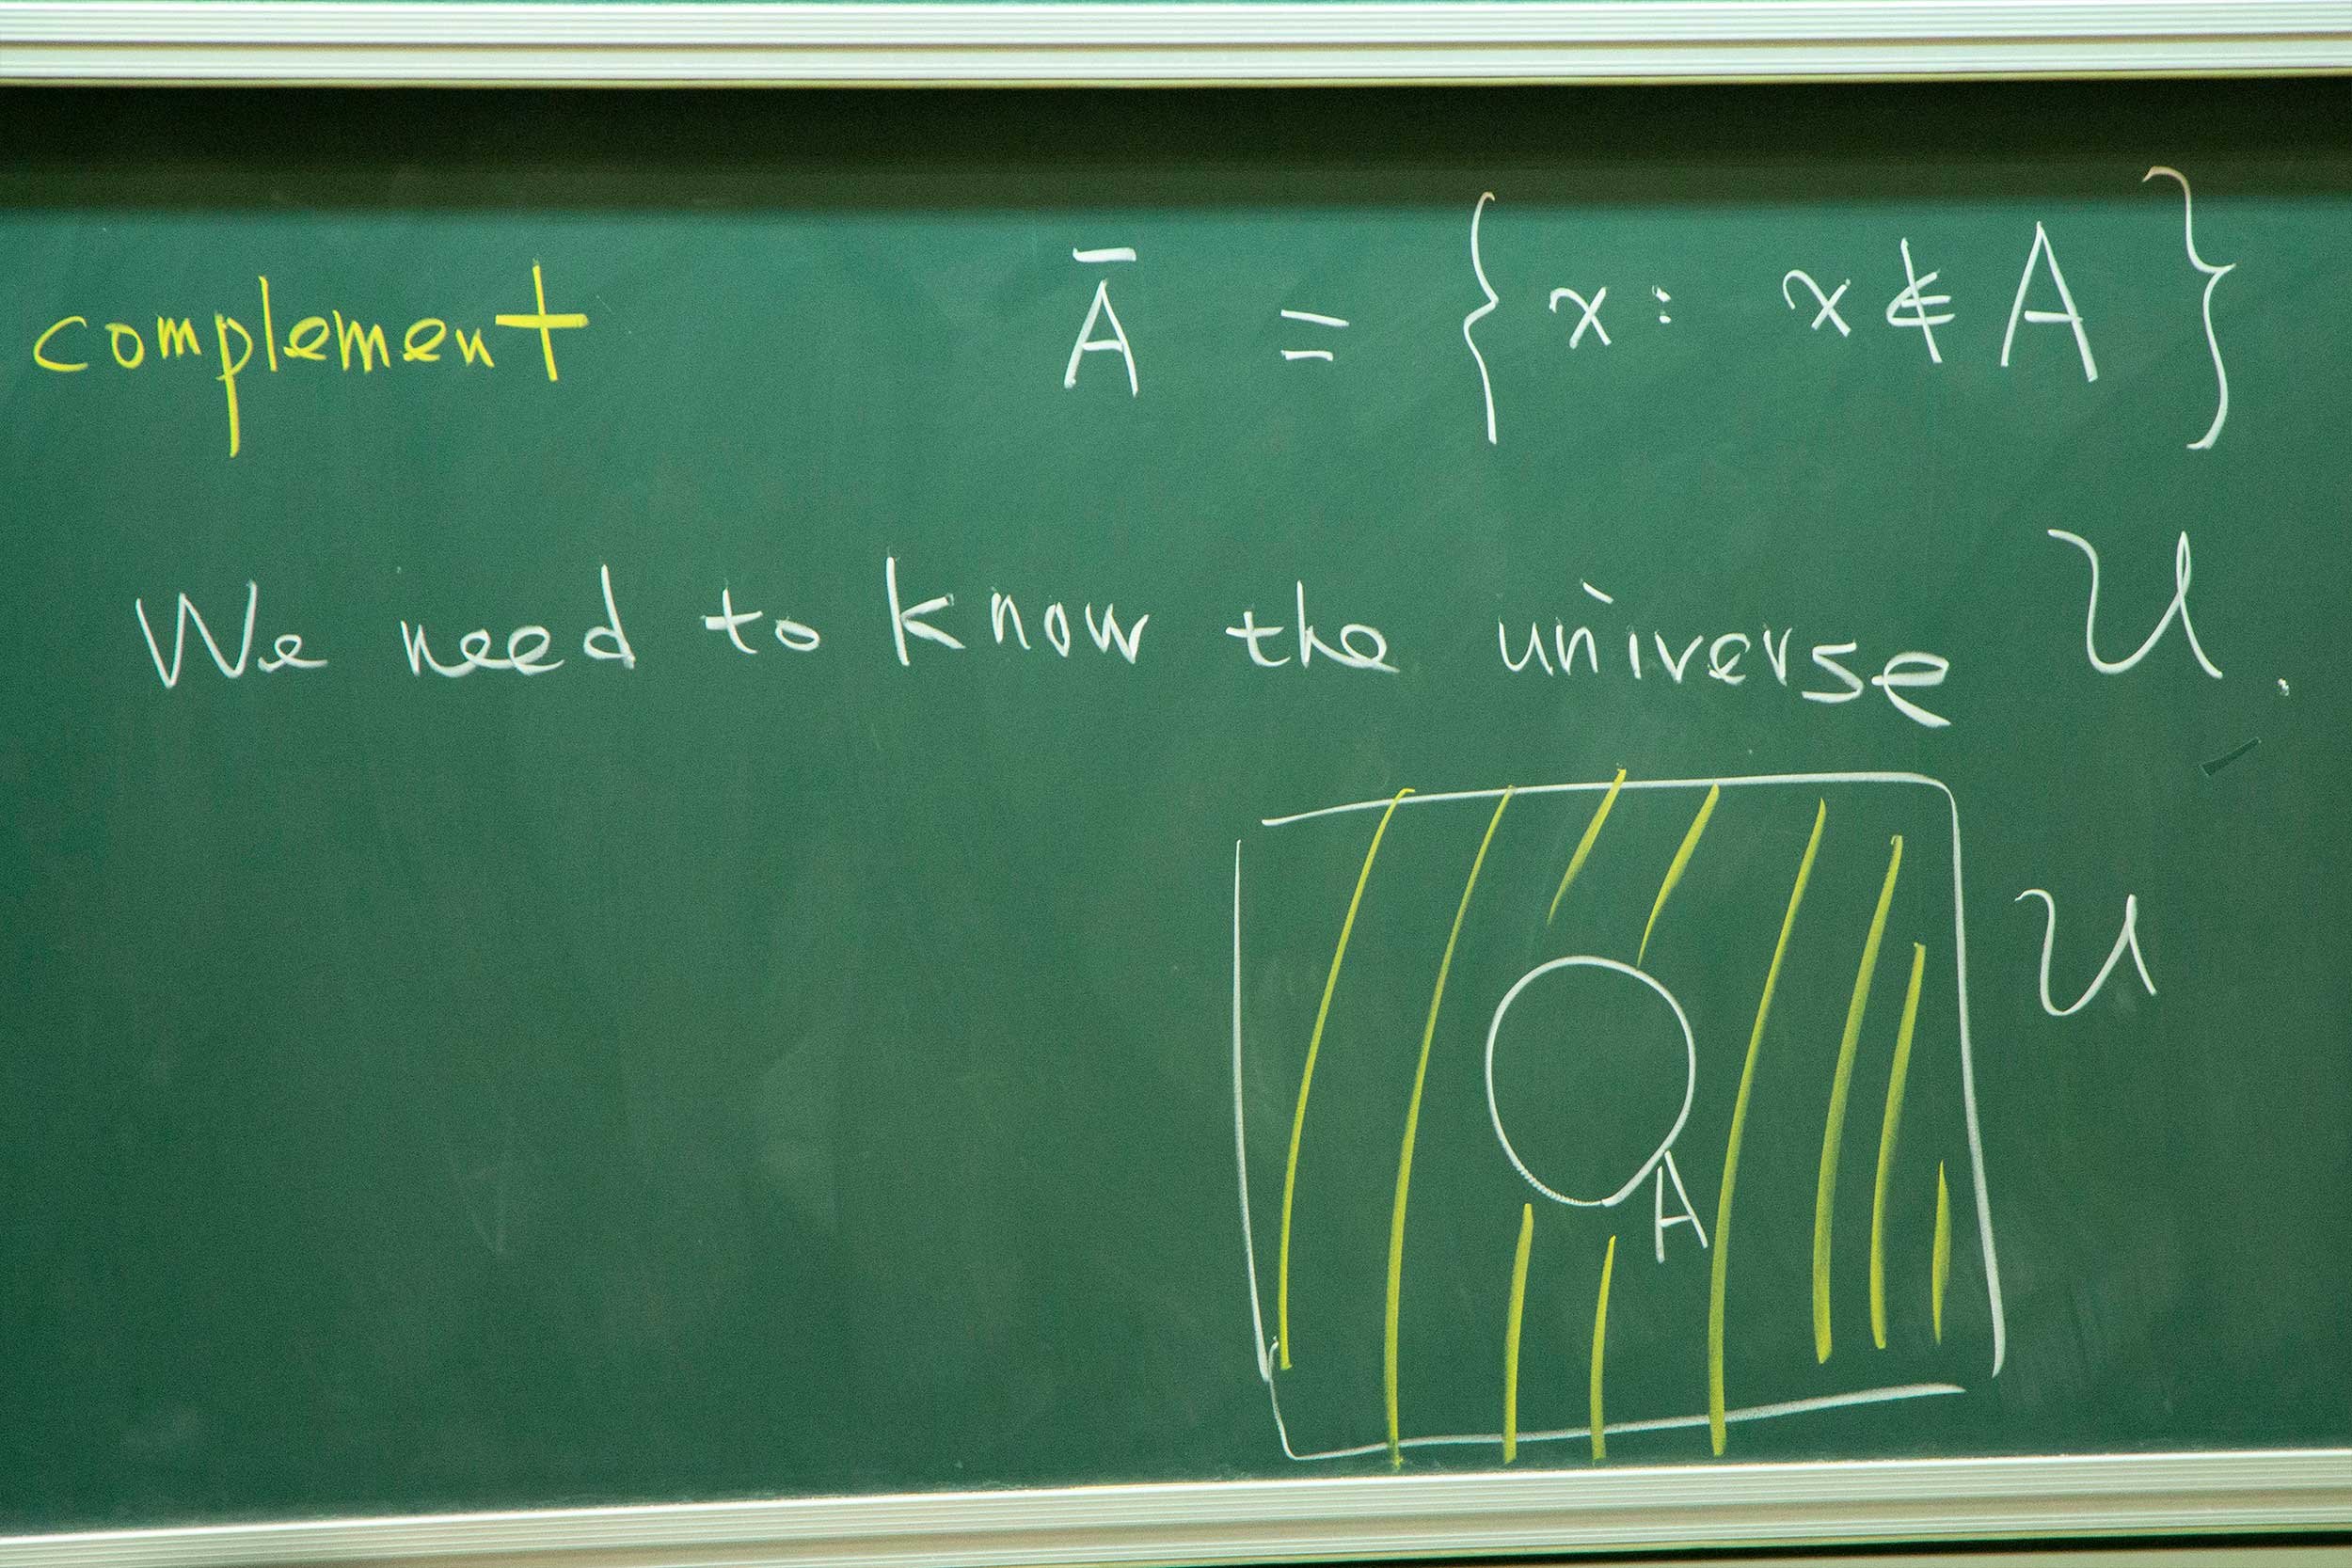 complement Ā = { x : x ∉ A }
We need to know the universe U.
U
A